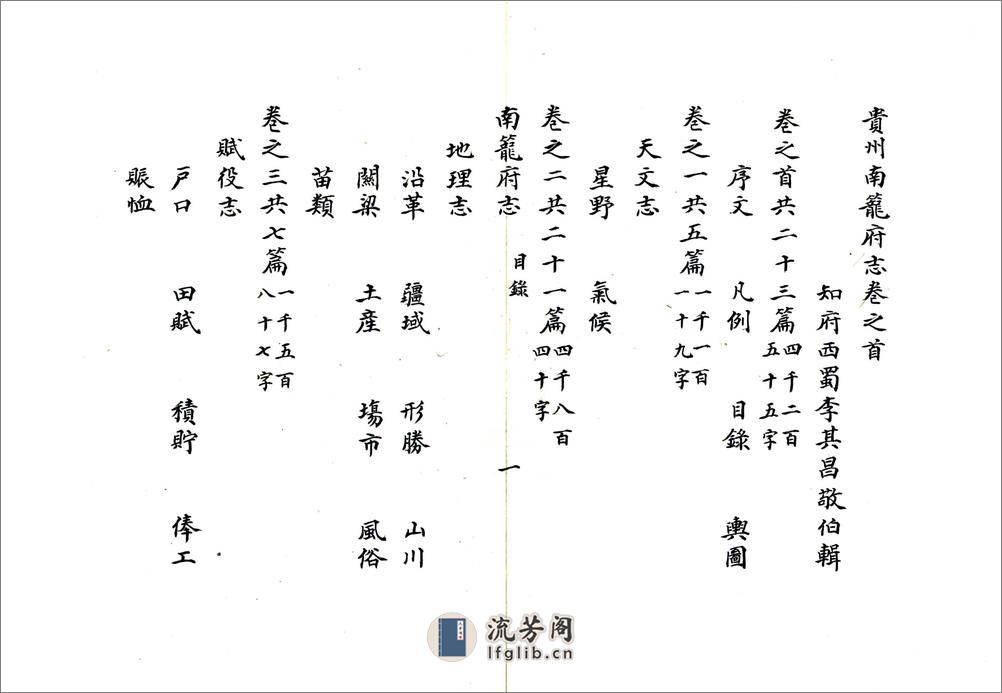 貴州南籠府志卷之首
知府西蜀李其昌敬伯輯
卷之首共二十三篇四千二百五十五字
序文 凡例 目錄 輿圖
卷之一共五篇一千一百一十九字
天文志
星野 氣候
卷之二共二十一篇四千八百四十字
南籠府志 目錄 一
地理志
沿革 疆域 形勝 山川
關梁 土産 塲市 風俗
苗類
卷之三共七篇一千五百八十七字
賦役志
戸口 田賦 積貯 俸工
賑恤
流芳阁
lfglib.cn